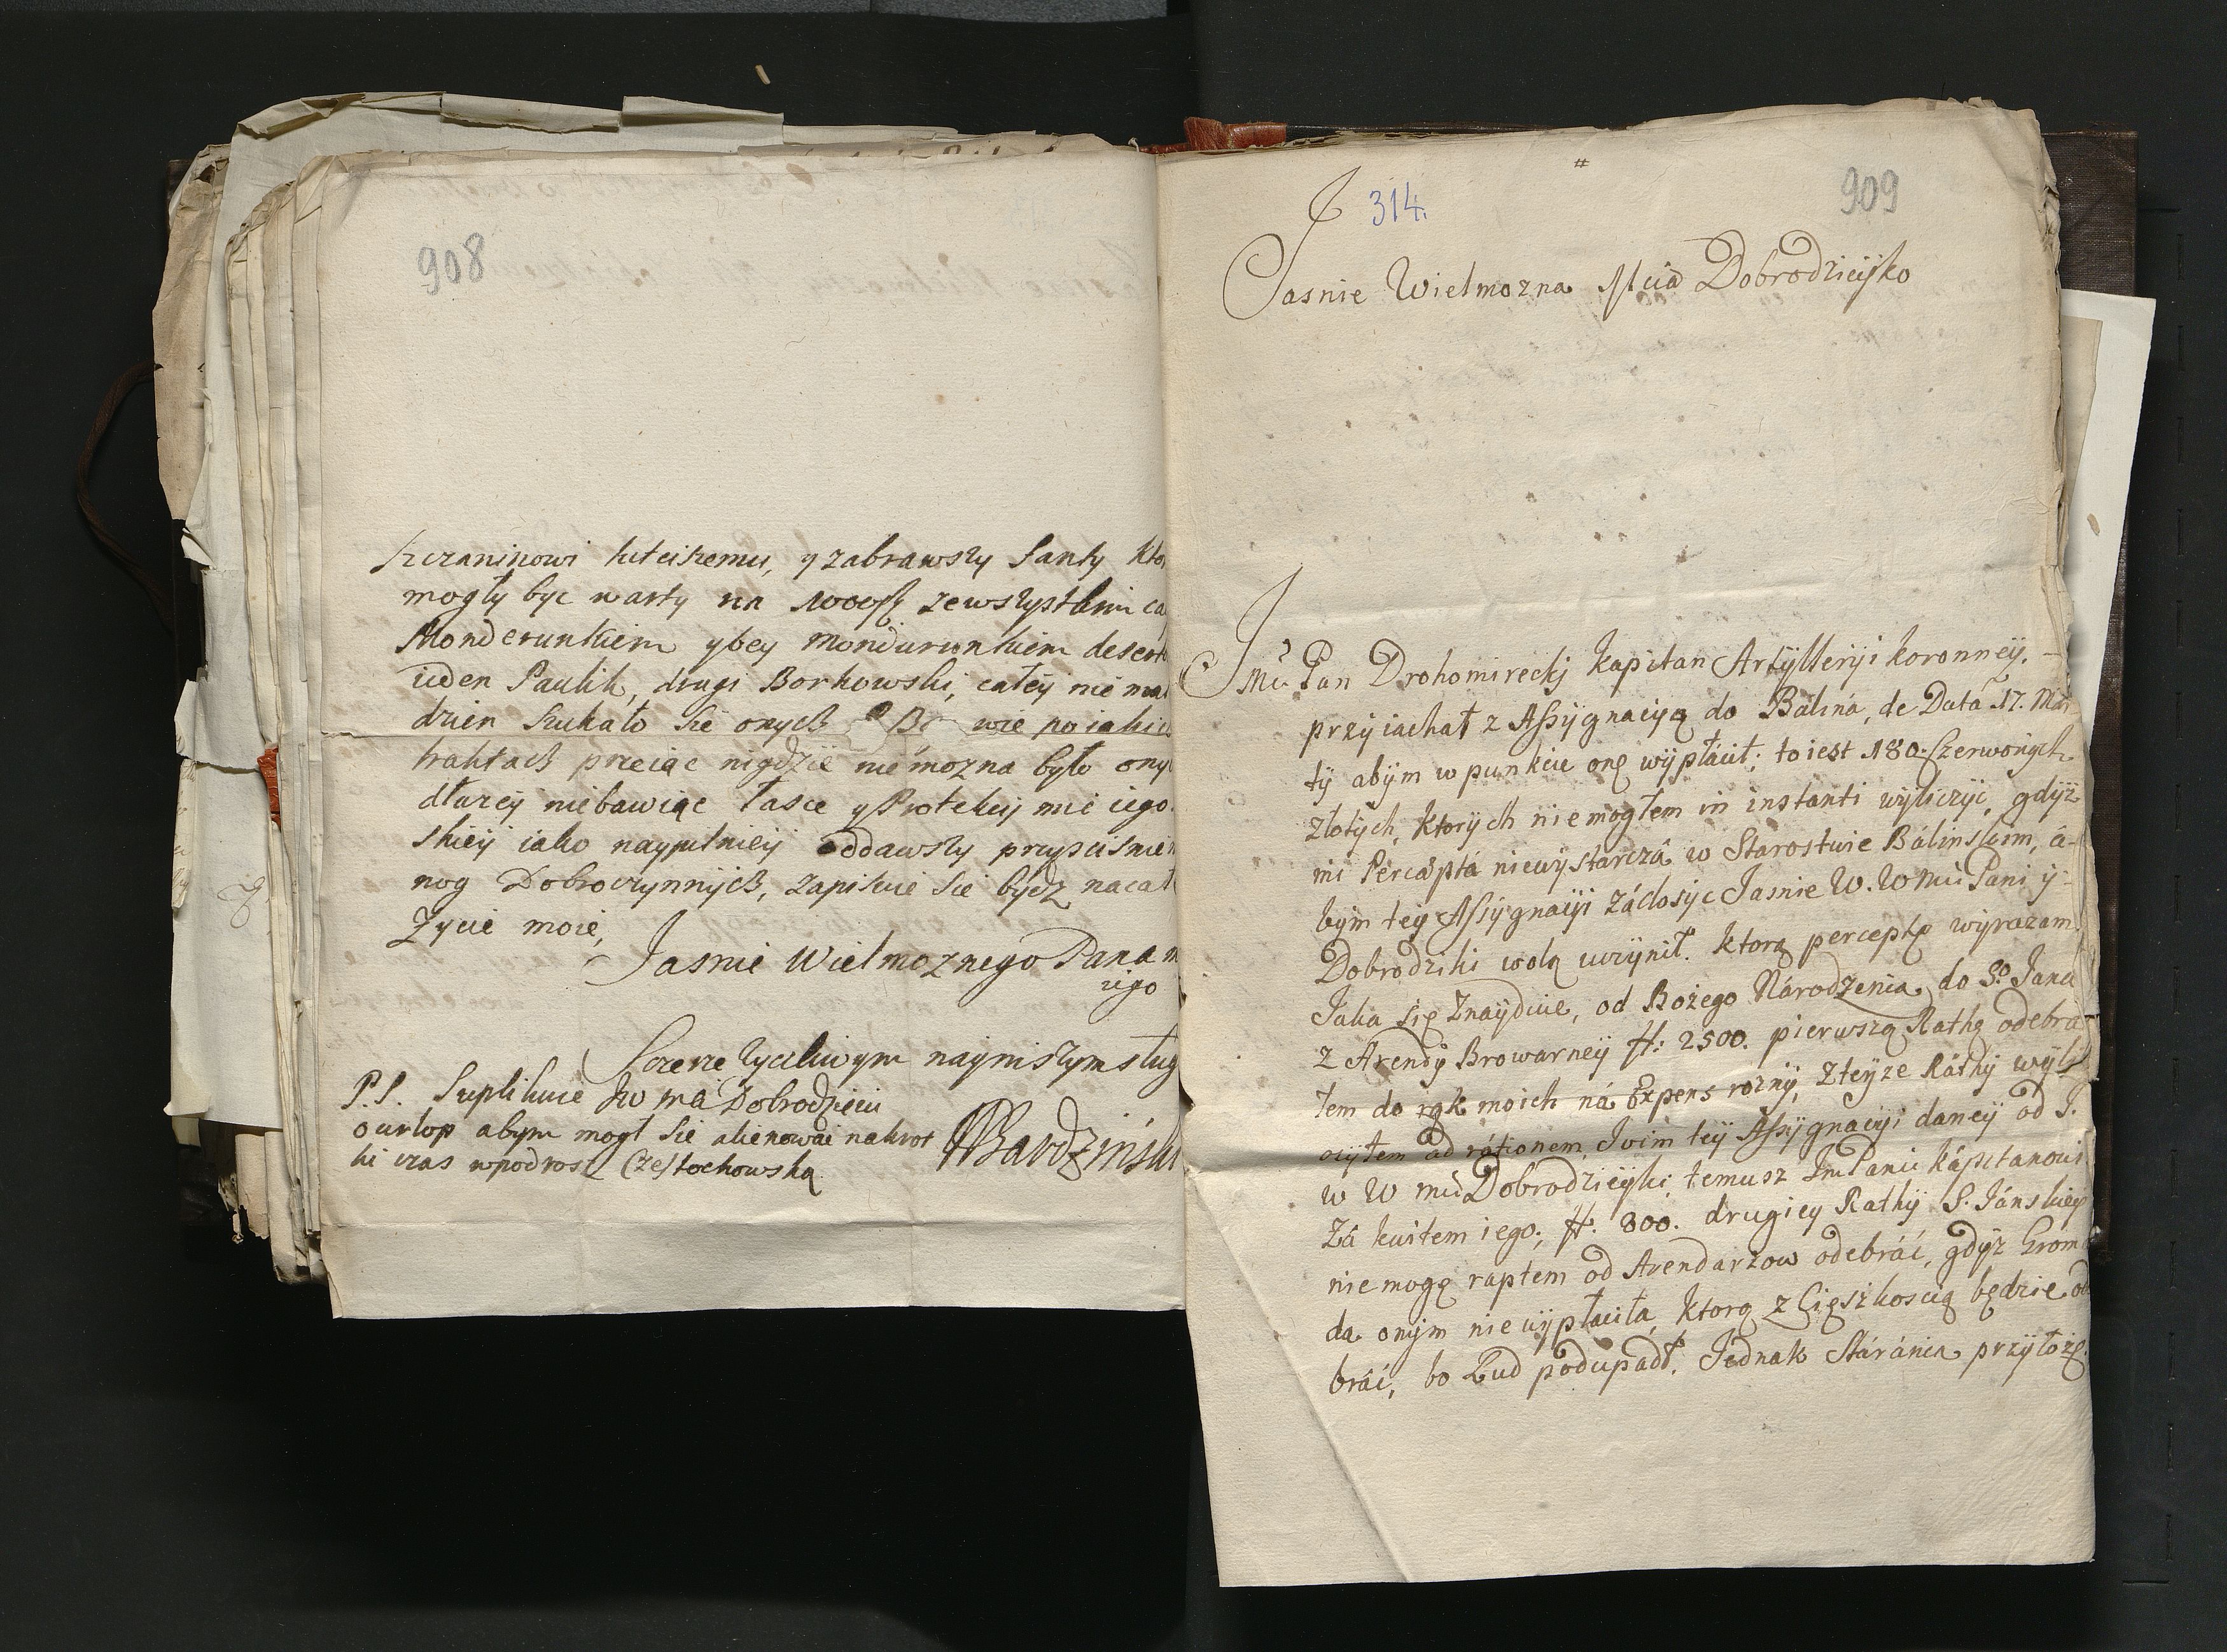 908
tuteiszemu, y zabrawszy fanty kto
mogły byc warty na 1000 zewszystkim ca
Monderunkiem y bey Mondurunkiem desert
ieden Paulik, drugi Borkowski, całey nie ma
dzien szukało sie onych Bo wie po iakich
traktach przeciąc nigdzie nie mozna było ony
dłuzey niebawiąc łasce y Protekcij mie iego
skieij iako nayputnieij oddawszy przyscisnie
nog Dobroczynnijch, zapisuie sie bydz nacał
Zycie moie,
Jasnie Wielmoznego Pana m
iego
Szczerze zyczliwym nayniszym sług
P.S. Suplikuie Dobrodzieiu
o urlop abym mogł sie alienowac nakrot
ki czas wpodrosz Częstochowską
Bardziński
909
314.
Jasnie Wielmozna Mcia Dobrodzieijko
Jmć Pan Drohomireckj Kapitan Artÿlleriji koronneÿ.
przyiachał z Assÿgnacÿą do Bálina, de Data 17. Mar
tÿ abÿm w punkcie onę wÿpłácił; to iest 180. Czerwonÿch
złotÿch, ktorÿch nie mogłem in instanti wÿliczÿć, gdÿż
mi Percæptá niewÿstarczá w Starostwie Bálinskim, á-
bÿm teÿ Assÿgnacÿi zádosÿc Jasnie W. W Mći Pani ÿ
Dobrodziki wolą uczÿnił. ktorą perceptę wÿrazam
Jaka się Znaÿduie, od Bożego Národzenia, do S.o Jana
z Arendÿ Browarneÿ ff: 2500. pierwszą Rathę odebra
łem do rąk moich ná Expens roznÿ, Zteÿze Ráthÿ wÿli
czÿłem ad rátionem, Jwim teÿ Assÿgnacÿi daneÿ od J.
w W mći Dobrodzieÿki, temusz Jm Panu kápitanowi
Zá kwitem iego; ff. 800. drugieÿ Rathÿ S. Jánskieÿ
nie mogę raptem od Arendarzow odebráć, gdÿz Grom
da onÿm nie wÿpłaciła, ktorą z Cięszkoscią będzie od
bráć, bo Lud podupadł. Jednak Stáránia przÿłożę.